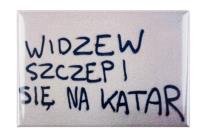 WIDZEW
SZCZEPI
SIĘ NA KATAR